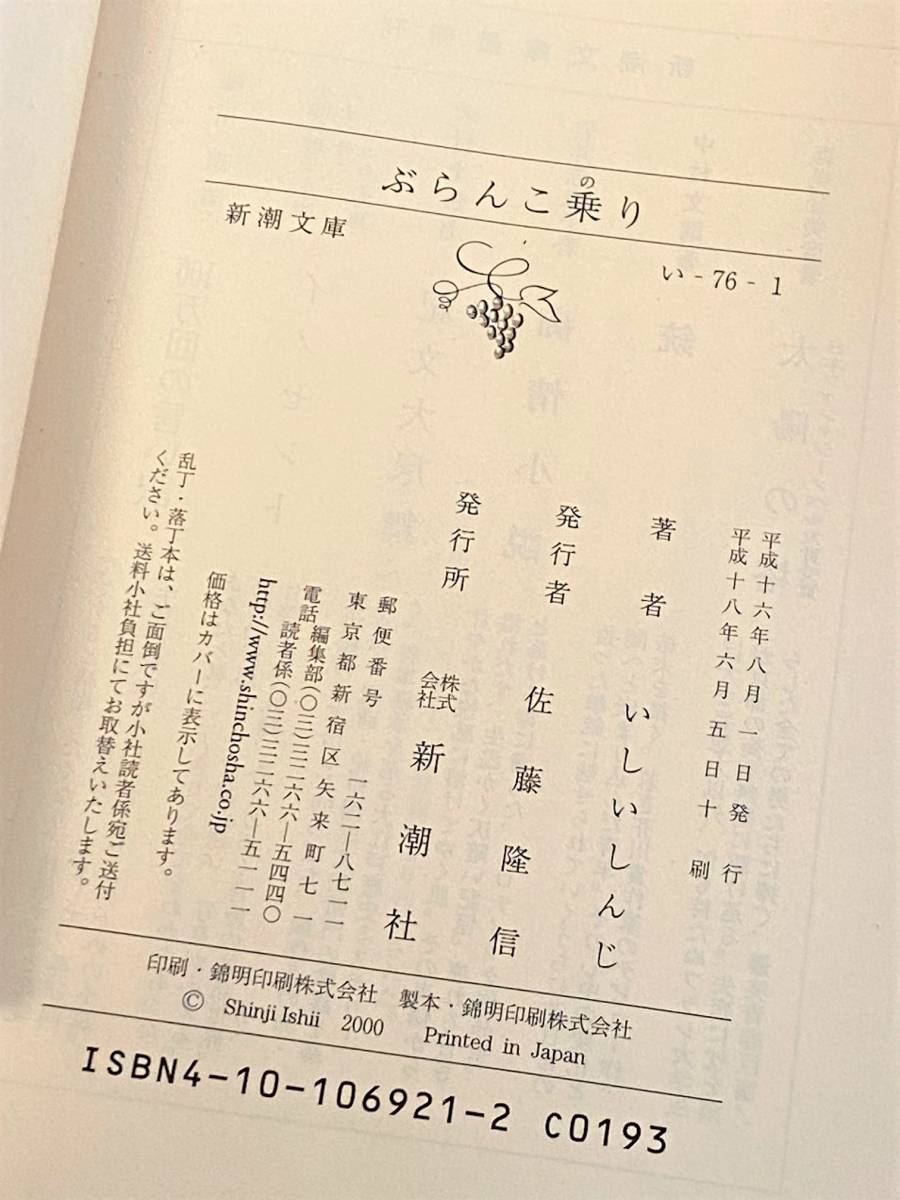 ぶらんこ乗り
の
新潮文庫
い-76-1
平成十六年八月一日発行
平成十八年六月五日十刷
著者 いしいしんじ
発行者 佐藤隆信
発行所 株式会社 新潮社
郵便番号 一六二―八七一一
東京都新宿区矢来町七一
電話 編集部(〇三)三二六六―五四四〇
読者係(〇三)三二六六―五一一一
http://www.shinchosha.co.jp
価格はカバーに表示してあります。
乱丁・落丁本は、ご面倒ですが小社読者係宛ご送付
ください。送料小社負担にてお取替えいたします。
印刷・錦明印刷株式会社 製本・錦明印刷株式会社
© Shinji Ishii 2000 Printed in Japan
ISBN4-10-106921-2 C0193